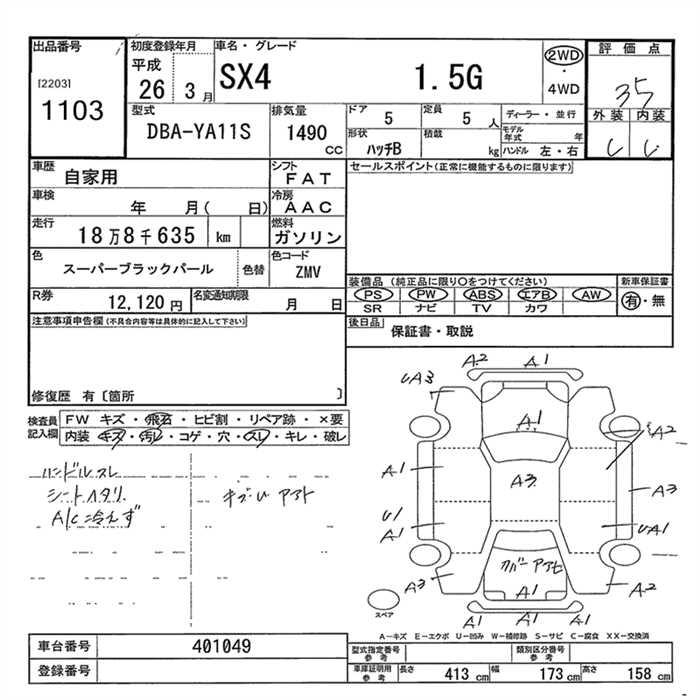 出品番号
[2203]
1103
初度登録年月
平成
26 3月
車名・グレード
SX4 1.5G
2WD
・
4WD
評価点
35
外装 内装
型式
DBA-YA11S
排気量
1490
CC
ドア
5
定員
5 人
形状
ハッチB
積載
kg
ディーラー・並行
モデル年式 年
ハンドル 左・右
車歴
自家用
シフト
FAT
車検
年 月( 日)
冷房
AAC
走行
18万8千635 km
燃料
ガソリン
色
スーパーブラックパール
色替
色コード
ZMV
R券
12,120円
名変通知期限
月 日
セールスポイント(正常に機能するものに限ります)
装備品(純正品に限り○をつけてください)
新車保証書
PS PW ABS エアB AW
SR ナビ TV カワ
有・無
後日品
保証書・取説
注意事項申告欄(不具合内容等は具体的に記入して下さい)
修復歴 有〔箇所 〕
検査員記入欄
FW キズ・飛石・ヒビ割・リペア跡・×要
内装・キズ・汚レ・コゲ・穴・スレ・キレ・破レ
ハンドルスレ
シートハタリ
A/C冷えず
キズUアト
A2
A1
UA3
A1
A2
A1
A3
A3
U1
A1
UA1
カバーアセ
A3
A1
A2
A1
スペア
A-キズ E-エクボ U-凹み W-補修跡 S-サビ C-腐食 XX-交換済
車台番号
401049
登録番号
型式指定番号
参考
類別区分番号
参考
車庫証明用
参考
長さ 413 cm
幅 173 cm
高さ 158 cm